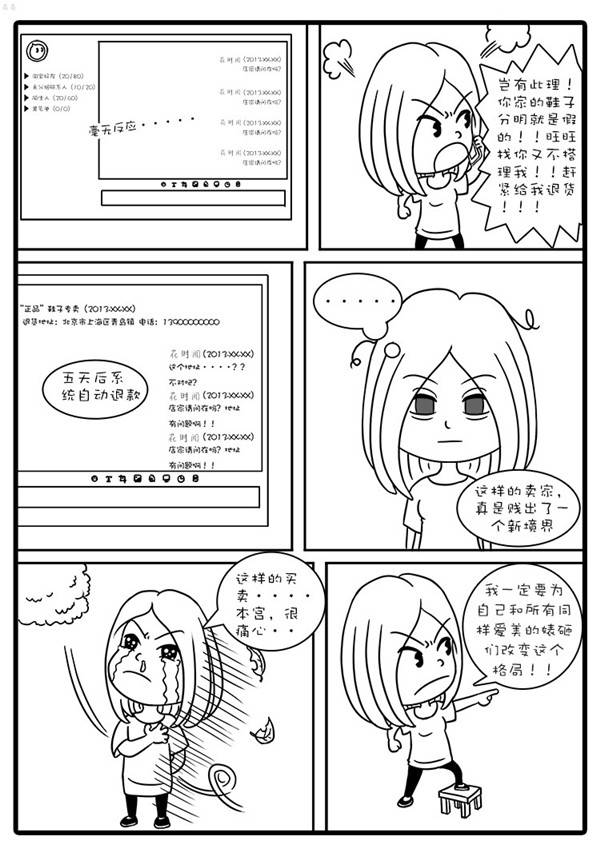 淘宝好友(20/80)
未分组联系人(10/20)
陌生人(20/60)
黑名单(0/0)
花时间(2013-XX-XX)
店家请问在吗?
花时间(2013-XX-XX)
店家请问在吗?
花时间(2013-XX-XX)
店家请问在吗?
花时间(2013-XX-XX)
店家请问在吗?
毫无反应·····
岂有此理!
你家的鞋子
分明就是假
的!!旺旺
找你又不搭
理我!!赶
紧给我退货
!!!
“正品”鞋子专卖(2013-XX-XX)
退货地址:北京市上海区青岛镇 电话:13900000000
花时间(2013-XX-XX)
这个地址····??
不对吧?
花时间(2013-XX-XX)
店家请问在吗?地址
有问题啊!!
花时间(2013-XX-XX)
店家请问在吗?地址
有问题啊!!
五天后系
统自动退款
·····
这样的卖家,
真是贱出了一
个新境界
这样的买
卖····
本宫,很
痛心··
我一定要为
自己和所有同
样爱美的婊砸
们改变这个
格局!!